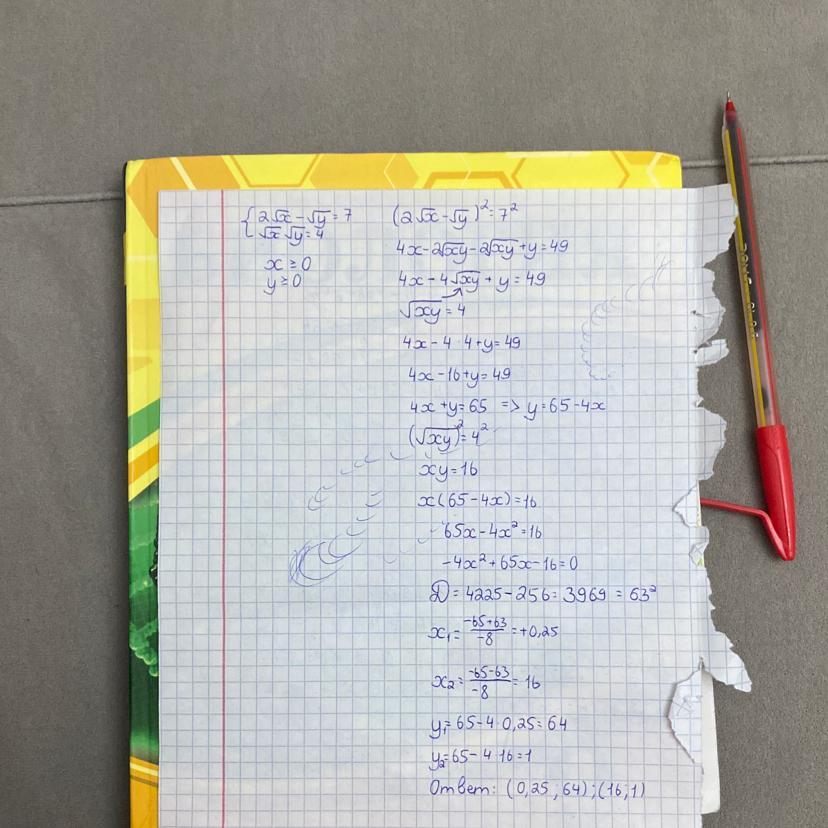 {2√x - √y = 7
√x √y = 4
x ≥ 0
y ≥ 0
(2√x - √y)² = 7²
4x - 2√xy - 2√xy + y = 49
4x - 4√xy + y = 49
√xy = 4
4x - 4 · 4 + y = 49
4x - 16 + y = 49
4x + y = 65 => y = 65 - 4x
(√xy)² = 4²
xy = 16
x(65 - 4x) = 16
65x - 4x² = 16
-4x² + 65x - 16 = 0
D = 4225 - 256 = 3969 = 63²
x₁ = (-65+63)/(-8) = +0,25
x₂ = (-65-63)/(-8) = 16
y₁ = 65 - 4 · 0,25 = 64
y₂ = 65 - 4 · 16 = 1
Ответ: (0,25 ; 64) ; (16 ; 1)